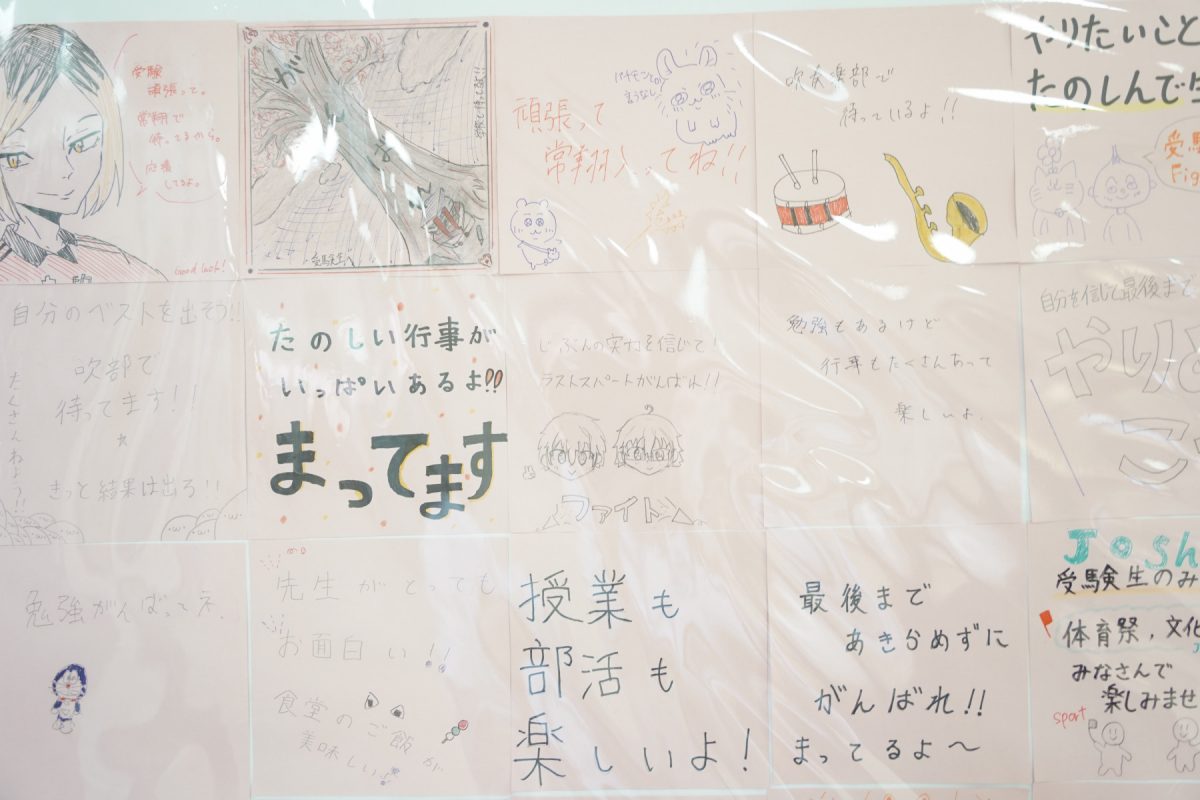 受験
頑張って。
常翔で
待ってるから。
応援
してるよ。
Good luck!
が
受験生へ
頑張って
常翔入ってね!!
吹奏楽部で
待っているよ!!
やりたいこと
たのしんで
受験
Fig
自分のベストを出そう!!
吹部で
待ってます!!
きっと結果は出ろ!!
たのしい行事が
いっぱいあるよ!!
まってます
じぶんの実力を信じて!
ラストスパートがんばれ!!
ファイト
勉強もあるけど
行事もたくさんあって
楽しいよ.
自分を信じて最後まで
やりと
こ
勉強がんばってネ.
先生がとっても
お面白い!!
食堂のご飯が
美味しい!!
授業も
部活も
楽しいよ!
最後まで
あきらめずに
がんばれ!!
まってるよ〜
Josh
受験生のみ
体育祭,文化
みなさんで
楽しみませ
sport